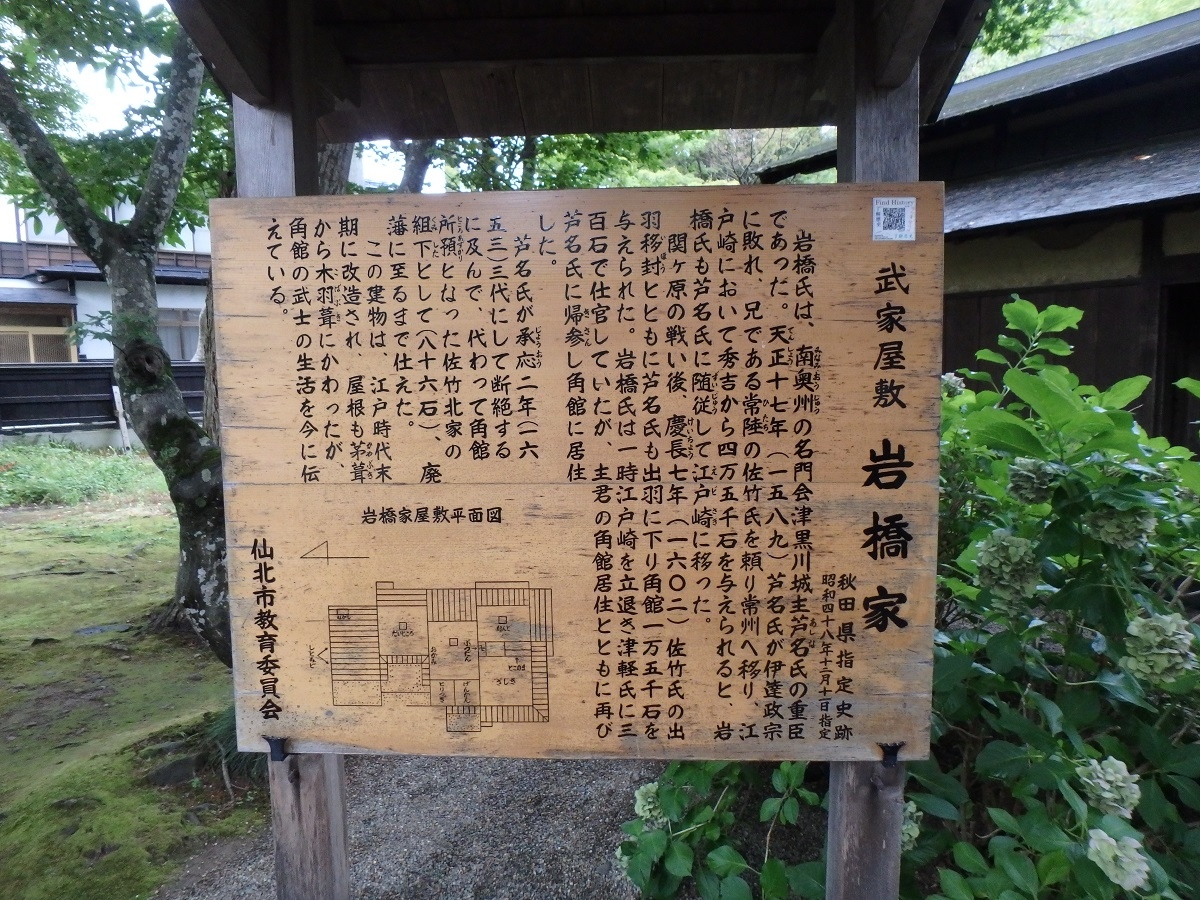 Find History
武家屋敷 岩橋家
秋田県指定史跡
昭和四十八年十二月十一日指定
岩橋氏は、南奥州の名門会津黒川城主芦名氏の重臣
であった。天正十七年(一五八九)芦名氏が伊達政宗
に敗れ、兄である常陸の佐竹氏を頼り常州へ移り、江
戸崎において秀吉から四万五千石を与えられると、岩
橋氏も芦名氏に随従して江戸崎に移った。
関ヶ原の戦い後、慶長七年(一六〇二)佐竹氏の出
羽移封とともに芦名氏も出羽に下り角館一万五千石を
与えられた。岩橋氏は一時江戸崎を立退き津軽氏に三
百石で仕官していたが、主君の角館居住とともに再び
芦名氏に帰参し角館に居住
した。
芦名氏が承応二年(一六
五三)三代にして断絶する
に及んで、代わって角館
所預となった佐竹北家の
組下として(八十六石)、廃
藩に至るまで仕えた。
この建物は、江戸時代末
期に改造され、屋根も茅葺
から木羽葺にかわったが、
角館の武士の生活を今に伝
えている。
岩橋家屋敷平面図
だいどころ
なんど
おかみ
とこのま
ざしき
げんかん
仙北市教育委員会